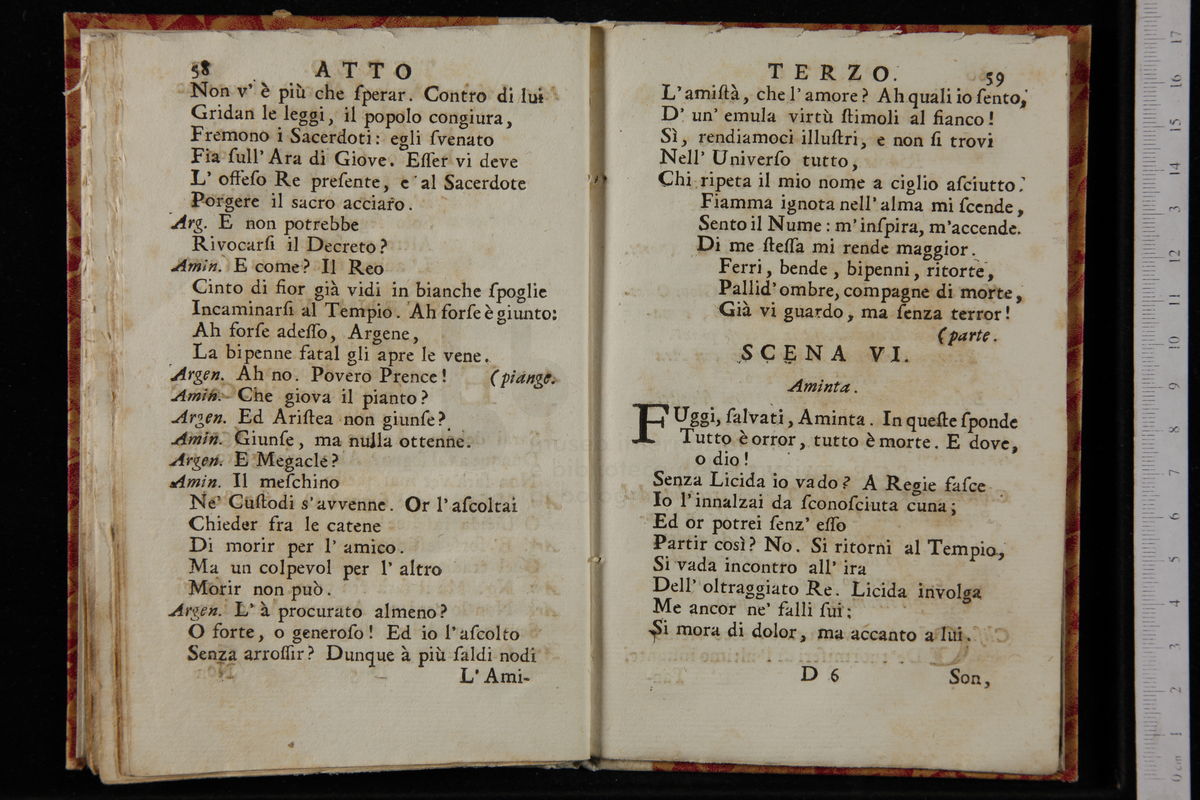 58 ATTO
Non v' è più che ſperar. Contro di lui
Gridan le leggi, il popolo congiura,
Fremono i Sacerdoti: egli ſvenato
Fia ſull' Ara di Giove. Eſſer vi deve
L' offeſo Re preſente, e al Sacerdote
Porgere il sacro acciaro.
Arg. E non potrebbe
Rivocarſi il Decreto?
Amin. E come? Il Reo
Cinto di fior già vidi in bianche ſpoglie
Incaminarſi al Tempio. Ah forſe è giunto:
Ah forſe adeſſo, Argene,
La bipenne fatal gli apre le vene.
Argen. Ah no. Povero Prence! (piange.
Amin. Che giova il pianto?
Argen. Ed Ariſtea non giunſe?
Amin. Giunſe, ma nulla ottenne.
Argen. E Megacle?
Amin. Il meſchino
Ne' Cuſtodi s'avvenne. Or l'aſcoltai
Chieder fra le catene
Di morir per l' amico.
Ma un colpevol per l' altro
Morir non può.
Argen. L' à procurato almeno?
O forte, o generoſo! Ed io l'aſcolto
Senza arroſſir? Dunque à più ſaldi nodi
L' Ami-
TERZO. 59
L'amiſtà, che l'amore? Ah quali io ſento,
D' un' emula virtù ſtimoli al fianco!
Sì, rendiamoci illuſtri, e non ſi trovi
Nell' Univerſo tutto,
Chi ripeta il mio nome a ciglio aſciutto.
Fiamma ignota nell'alma mi ſcende,
Sento il Nume: m'inſpira, m'accende.
Di me ſteſſa mi rende maggior.
Ferri, bende, bipenni, ritorte,
Pallid'ombre, compagne di morte,
Già vi guardo, ma ſenza terror!
(parte.
SCENA VI.
Aminta.
FUggi, ſalvati, Aminta. In queſte ſponde
Tutto è orror, tutto è morte. E dove,
o dio!
Senza Licida io vado? A Regie faſce
Io l'innalzai da ſconoſciuta cuna;
Ed or potrei ſenz' eſſo
Partir così? No. Si ritorni al Tempio,
Si vada incontro all' ira
Dell' oltraggiato Re. Licida involga
Me ancor ne' falli ſui;
Si mora di dolor, ma accanto a lui.
D 6 Son,